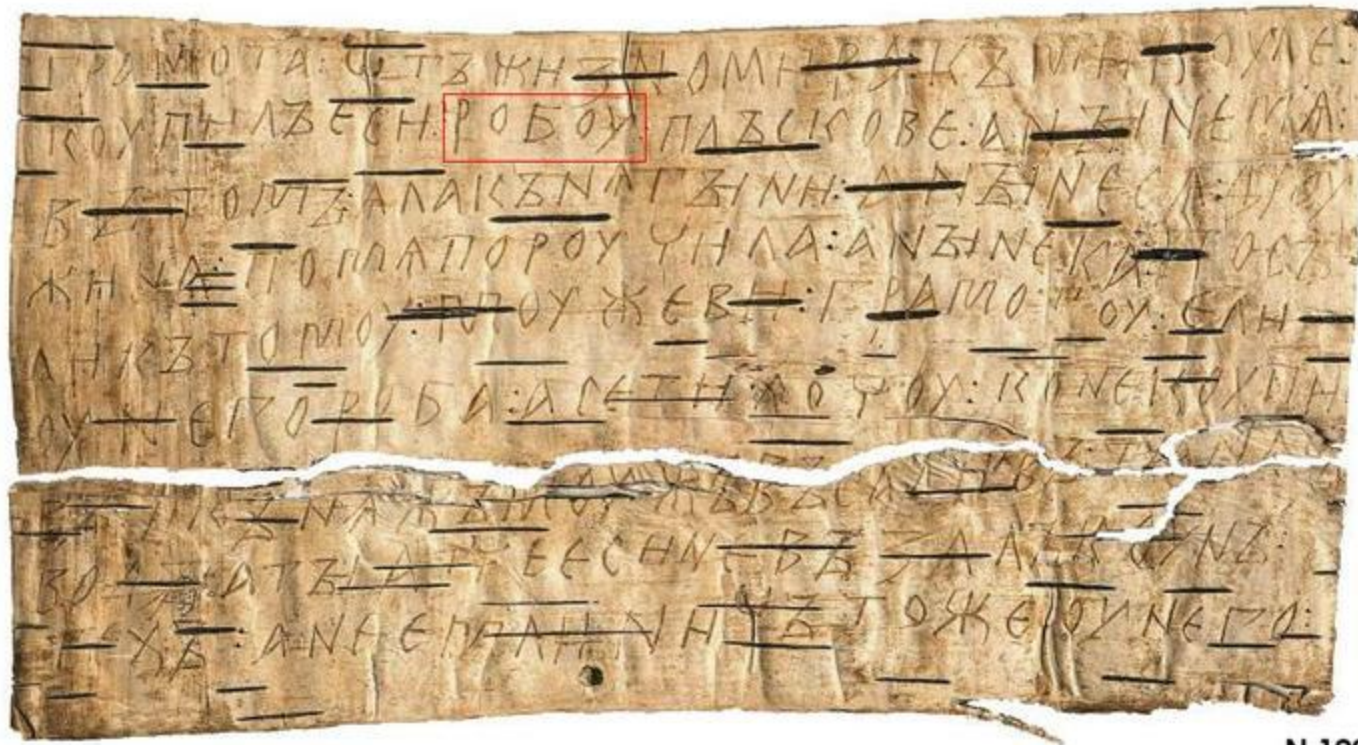 ГРАМОТА : ѠТЪ ЖИЗНОМИРА : КЪ МИКОУЛЕ :
КОУПИЛЪ ЕСИ : РОБОУ : ПЛЪСКОВЕ : А НЪІНЕ МѦ :
ВЪ ТОМЪ : ѦЛА КЪНѦГЪІНИ : А НЪІНЕ СѦ ДРОУ
ЖИНА : ПО МѦ ПОРОУЧИЛА : А НЪІНЕ КА : ПОСЪ
ЛИ КЪ ТОМОУ : МОУЖЕВИ : ГРАМОТОУ : Е ЛИ
ОУ НЕГО РОБА : А СЕ ТИ ХОЧОУ : КОНЕ КОУПИ
ВЪ : И КЪНѦЖЪ МОУЖЪ ВЪСАДИВЪ : ТА НА СЪ
ВОДЪІ : А ТЪІ АТЧЕ ЕСИ НЕ ВЪЗАЛЪ КОУНЪ :
ТЕХЪ : А НЕ ЕМЛИ : НИЧЪТО ЖЕ ОУ НЕГО :